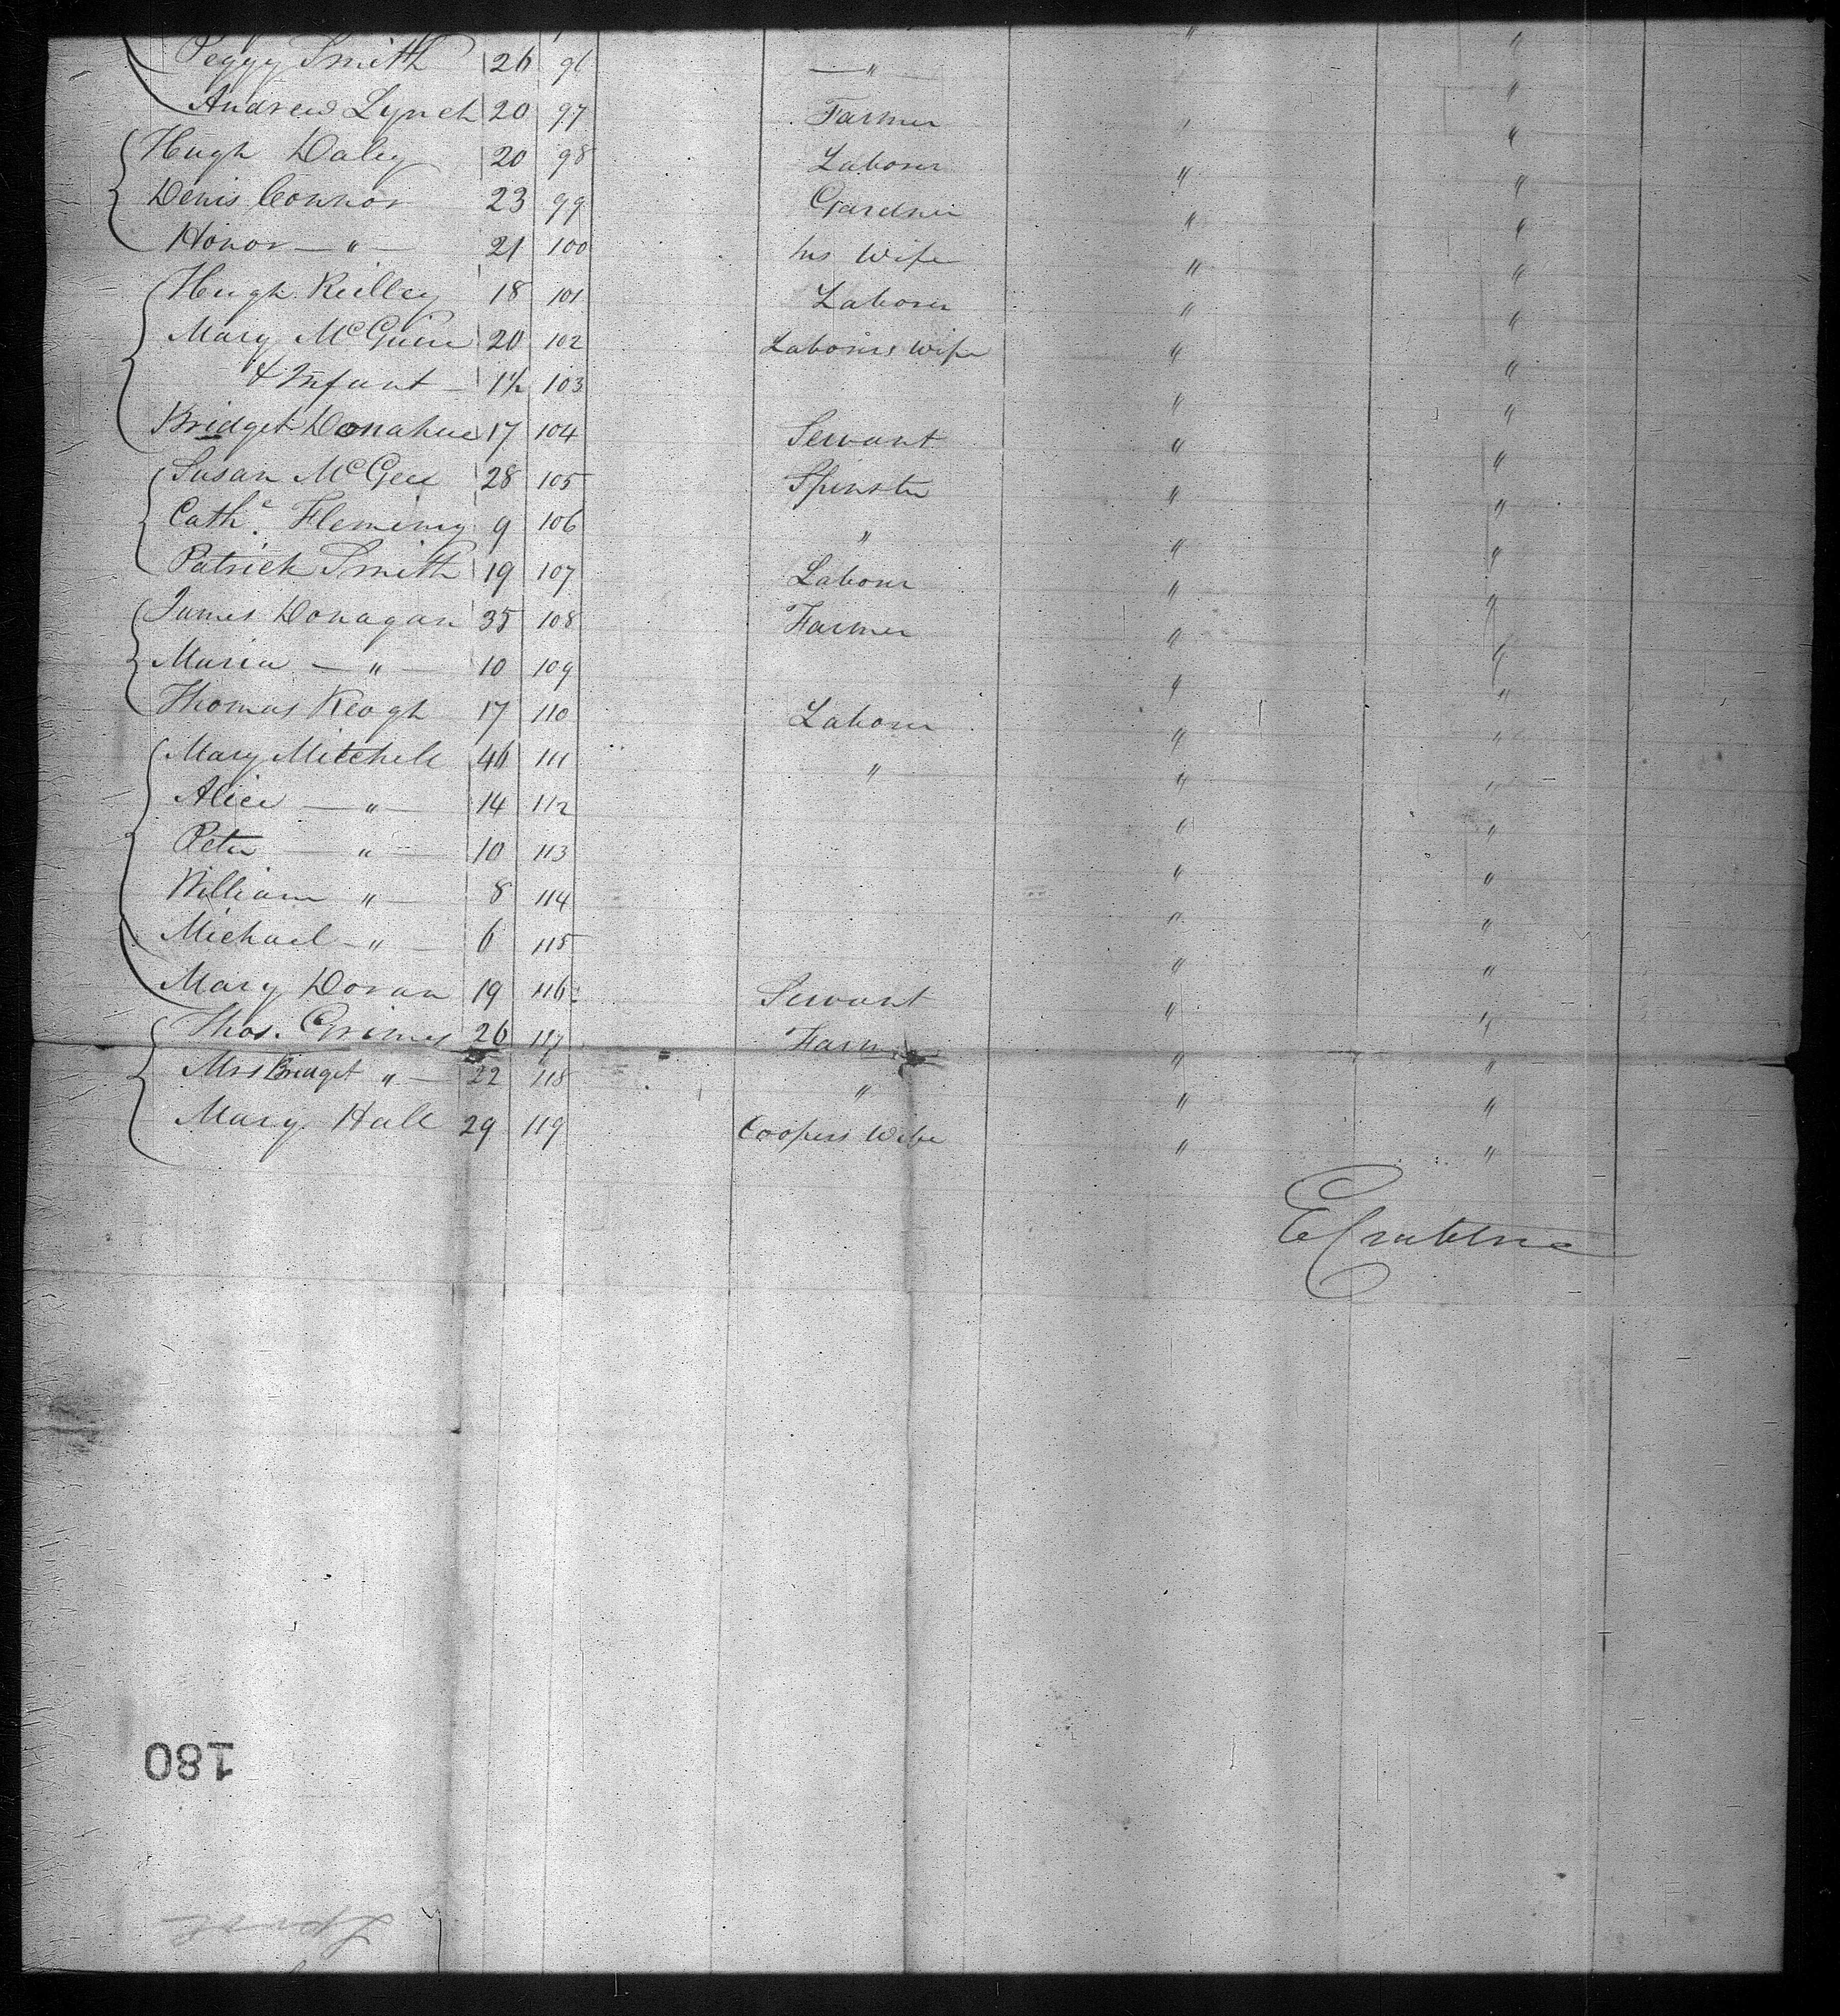 Peggy Smith 26 96 — " " "
Andrew Lynch 20 97 Farmer " "
Hugh Daley 20 98 Laborer " "
Denis Connor 23 99 Gardner " "
Honor — " — 21 100 his Wife " "
Hugh Reilley 18 101 Laborer " "
Mary McGuire 20 102 Laborers Wife " "
& Infant — 1½ 103 " "
Bridget Donahue 17 104 Servant " "
Susan McGee 28 105 Spinster " "
Cathe. Fleming 9 106 " " "
Patrick Smith 19 107 Labour " "
James Donagan 35 108 Farmer " "
Maria — " — 10 109 " "
Thomas Keogh 17 110 Labour " "
Mary Mitchell 46 111 " " "
Alice — " — 14 112 " "
Peter — " — 10 113 " "
William " — 8 114 " "
Michael — " — 6 115 " "
Mary Doran 19 116 Servant " "
Thos. Grimes 26 117 Farm " "
Mrs Bridget " — 22 118 " " "
Mary Hall 29 119 Coopers Wife " "
180